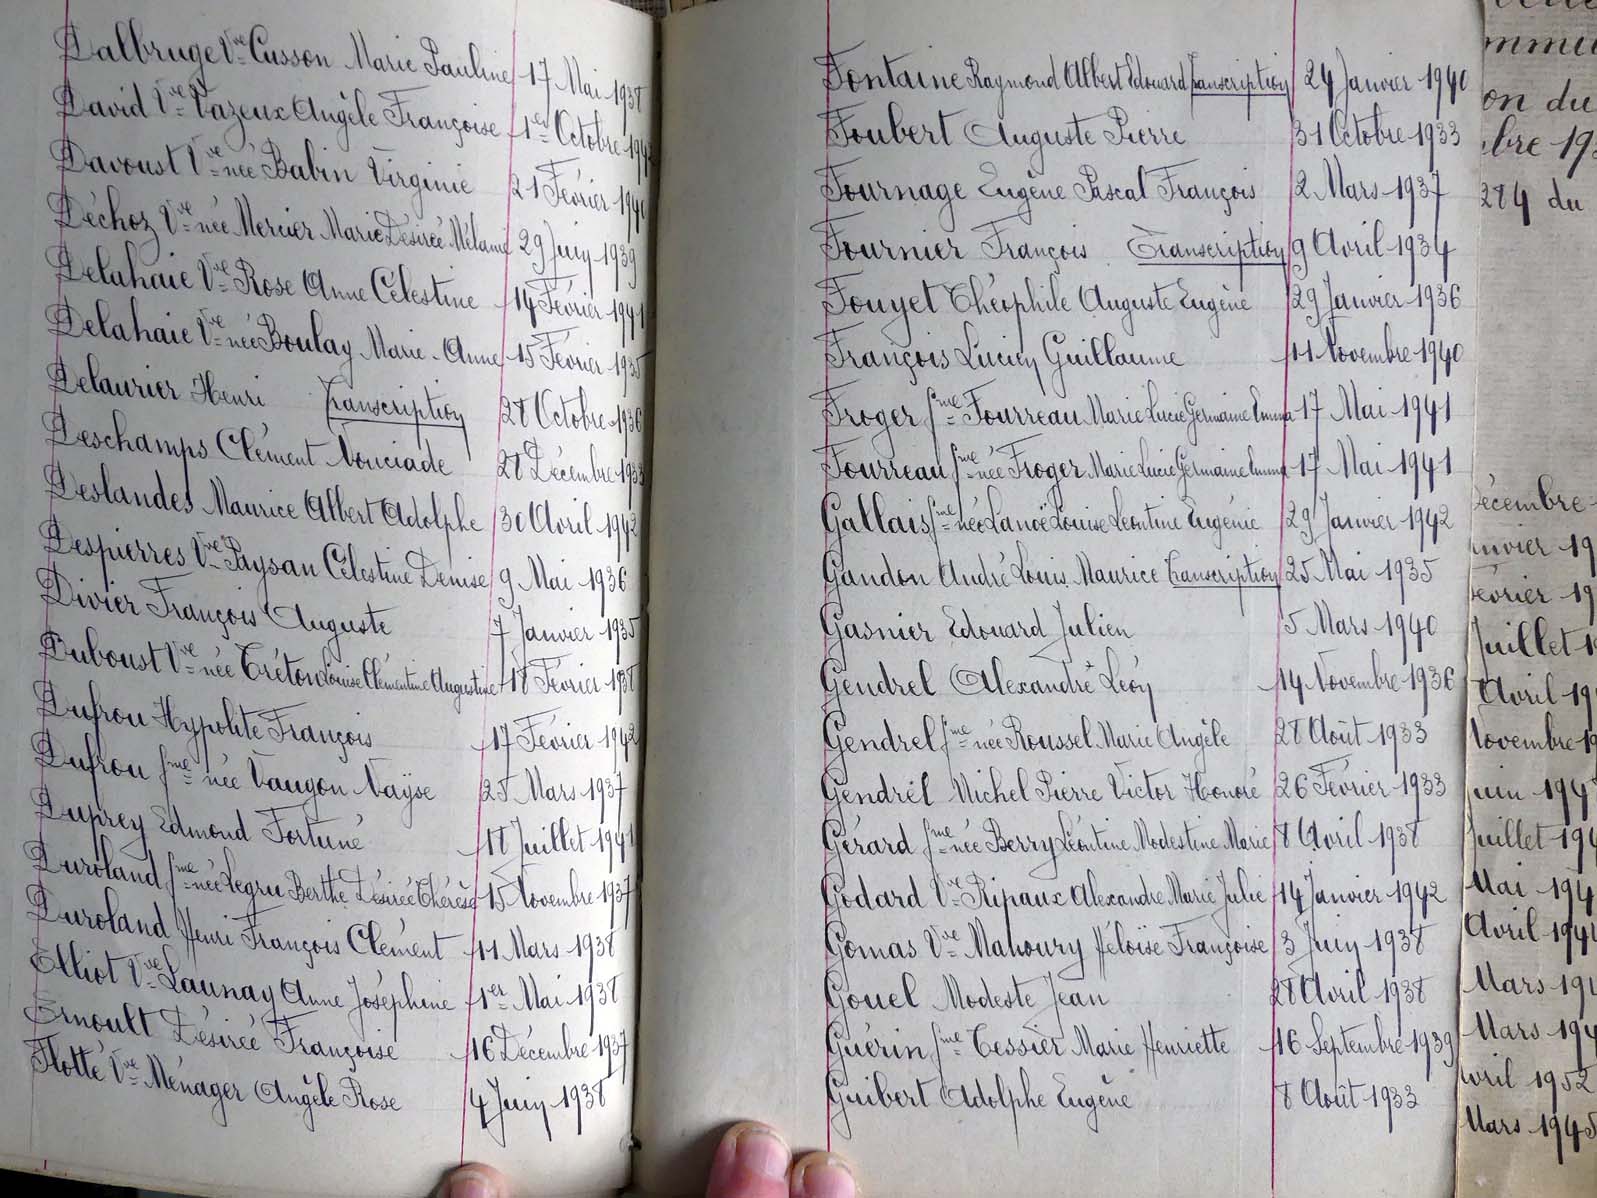 Dalbruge Vve Cusson Marie Pauline 17 Mai 1938
David Vve Vazeux Angèle Françoise 1er Octobre
Davoust Vve née Babin Virginie 21 Février
Déchoz Vve née Mercier Marie Désirée Mélanie 29 Juin 1939
Delahaie Vve Rose Anne Célestine 14 Février 1941
Delahaie Vve née Boulay Marie-Anne 15 Février 1935
Delaurier Henri Transcription 28 Octobre 1936
Deschamps Clément Nouciade 28 Décembre 1933
Deslandes Maurice Albert Adolphe 30 Avril 1942
Despierres Vve Paysan Célestine Denise 9 Mai 1936
Divier François Auguste 7 Janvier 1935
Duboust Vve née Tréton Louise Clémentine Augustine 18 Février 1938
Dufrou Hypolite François 17 Février 1942
Dufrou fme née Vaugon Nayse 25 Mars 1937
Duprey Edmond Fortuné 18 Juillet 1941
Duroland fme née Legru Berthe Désirée Thérèse 15 Novembre 1937
Duroland Henri François Clément 11 Mars 1938
Elliot Vve Launay Anne Joséphine 1er Mai 1938
Ernoult Désirée Françoise 16 Décembre 1937
Flotté Vve Ménager Angèle Rose 4 Juin 1938
Fontaine Raymond Albert Edouard Transcription 24 Janvier 1940
Foubert Auguste Pierre 31 Octobre 1933
Fournage Eugène Pascal François 2 Mars 1937
Fournier François Transcription 9 Avril 1934
Fouyet Théophile Auguste Eugène 29 Janvier 1936
François Lucien Guillaume 11 Novembre 1940
Froger fme Fourreau Marie Lucie Germaine Emma 17 Mai 1941
Fourreau fme née Froger Marie Lucie Germaine Emma 17 Mai 1941
Gallais fme née Lanoë Louise Léontine Eugénie 29 Janvier 1942
Gandon André Louis Maurice Transcription 25 Mai 1935
Gasnier Edouard Julien 5 Mars 1940
Gendrel Alexandre Léon 14 Novembre 1936
Gendrel fme née Roussel Marie Angèle 28 Août 1933
Gendrel Michel Pierre Victor Honoré 26 Février 1933
Gérard fme née Berry Léontine Modestine Marie 8 Avril 1938
Godard Vve Ripaux Alexandre Marie Julie 14 Janvier 1942
Gomas Vve Mahoury Héloïse Françoise 3 Juin 1938
Gouel Modeste Jean 28 Avril 1938
Guérin fme Tessier Marie Henriette 16 Septembre 1939
Guibert Adolphe Eugène 8 Août 1933
on du
284 du
Décembre
Février 19
Juillet 19
Avril 19
Novembre 19
Juin 194
Juillet 194
Mai 194
Avril 194
Mars 19
Mars 194
Avril 1952
Mars 1945